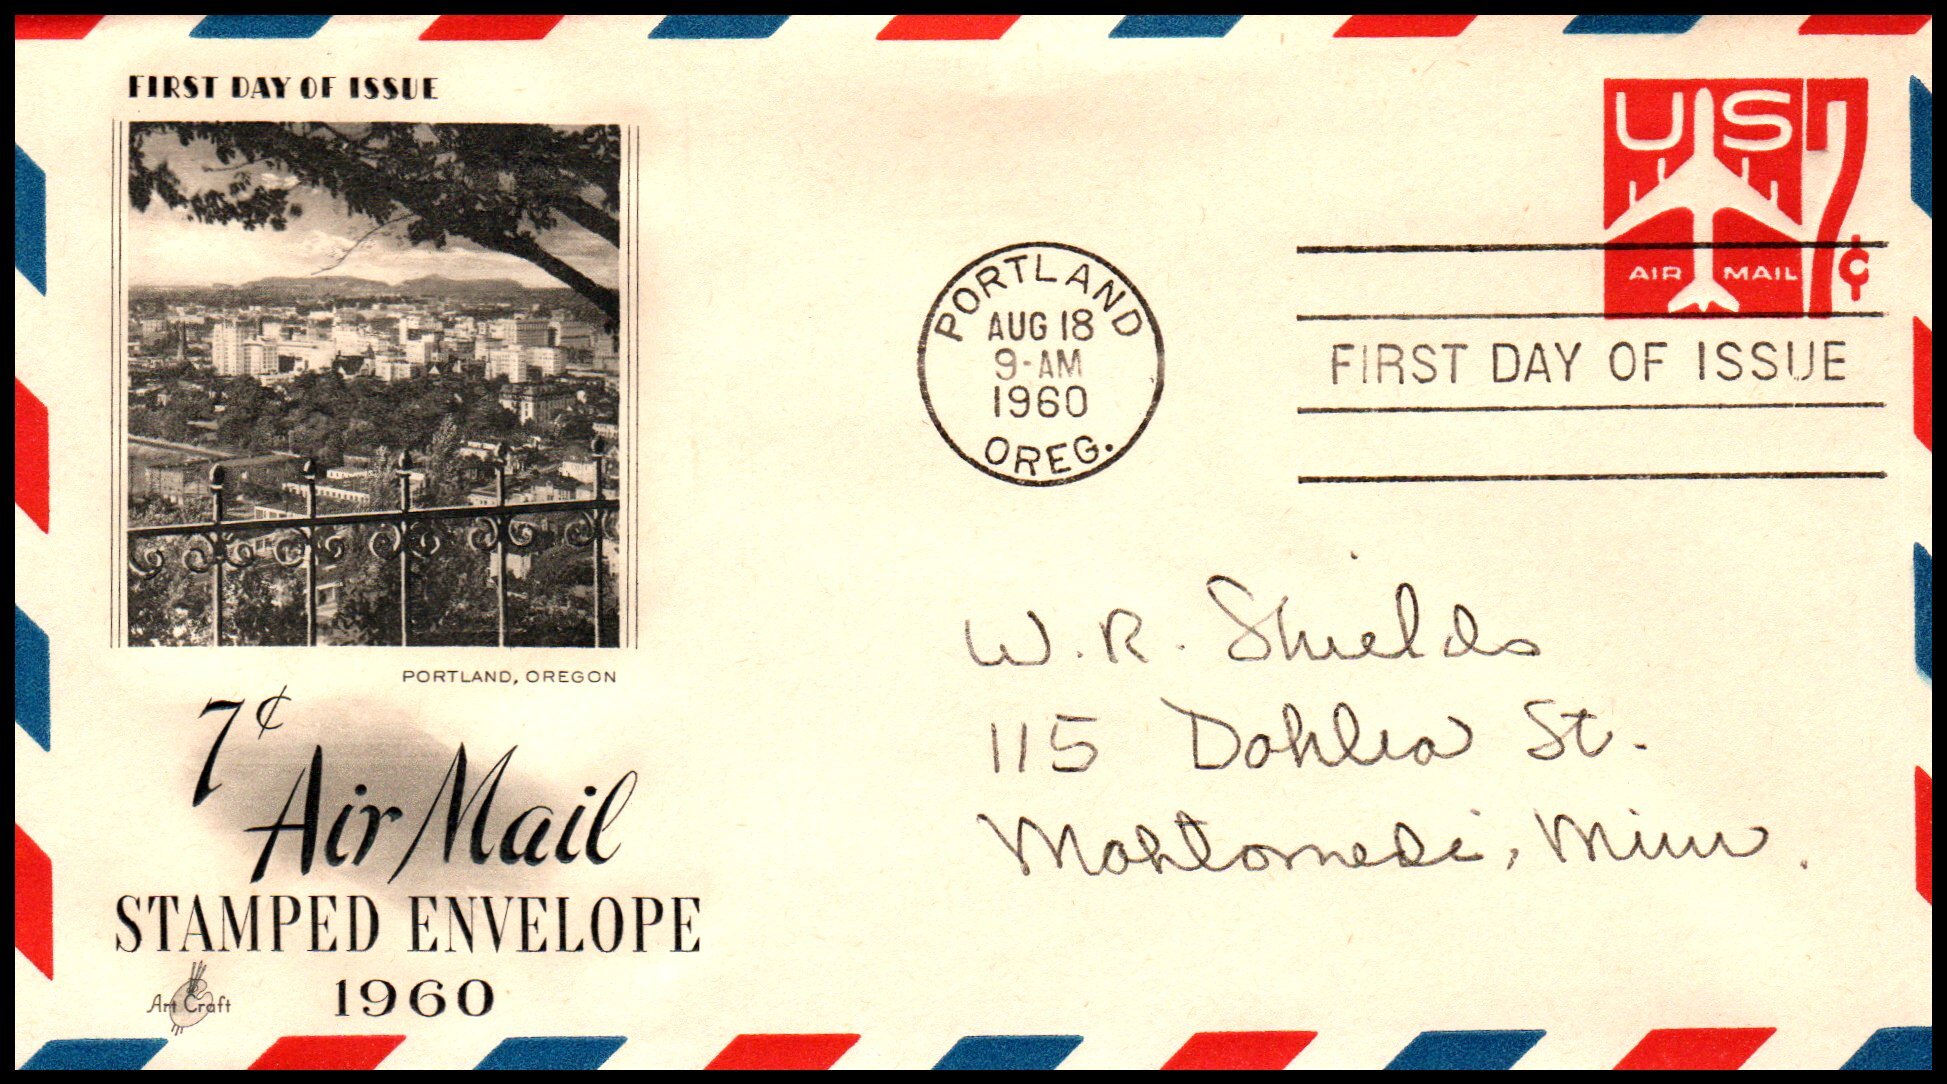 FIRST DAY OF ISSUE
PORTLAND, OREGON
7¢
Air Mail
STAMPED ENVELOPE
1960
Art Craft
PORTLAND
AUG 18
9-AM
1960
OREG.
US 7¢
AIR MAIL
FIRST DAY OF ISSUE
W. R. Shields
115 Dahlia St.
Mahtomedi, Minn.